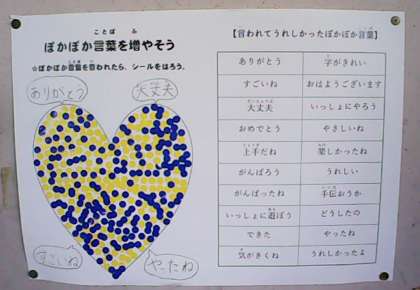 ぽかぽか言葉を増やそう
☆ぽかぽか言葉を言われたら、シールをはろう。
ありがとう
大丈夫
すごいね
やったね
【言われてうれしかったぽかぽか言葉】
ありがとう 字がきれい
すごいね おはようございます
大丈夫 いっしょにやろう
おめでとう やさしいね
上手だね 楽しかったね
がんばろう うれしい
がんばったね 手伝おうか
いっしょに遊ぼう どうしたの
できた やったね
気がきくね うれしかったよ